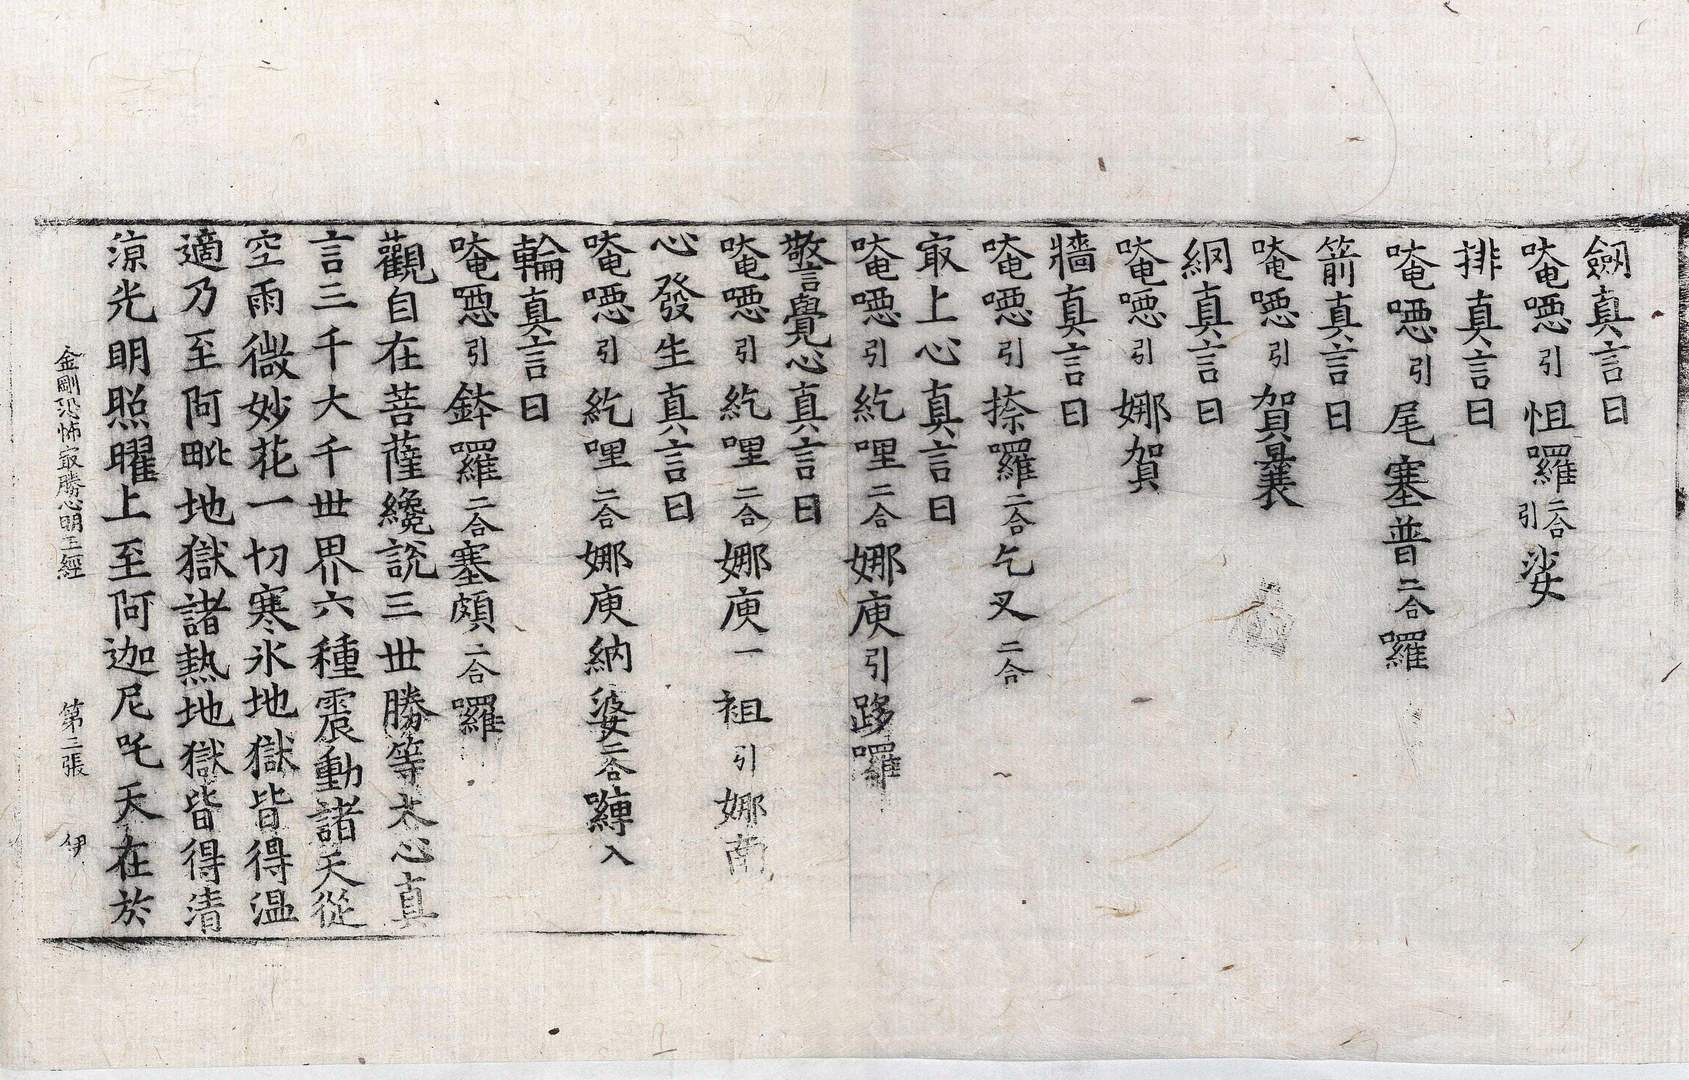 劒真言曰
唵𡁠引怚囉二合引娑
排真言曰
唵𡁠引尾塞普二合囉
箭真言曰
唵𡁠引賀曩
網真言曰
唵𡁠引娜賀
牆真言曰
唵𡁠引捺囉二合乞叉二合
㝡上心真言曰
唵𡁠引紇哩二合娜庾引跢囉
警覺心真言曰
唵𡁠引紇哩二合娜庾一袓引娜南
心發生真言曰
唵𡁠引紇哩二合娜庾納婆二合嚩入
輪真言曰
唵𡁠引鉢囉二合塞頗二合囉
觀自在菩薩纔説三世勝等大心真
言三千大千世界六種震動諸天從
空雨微妙花一切寒氷地獄皆得温
適乃至阿毗地獄諸熱地獄皆得清
涼光明照曜上至阿迦尼吒天在於
金剛恐怖㝡勝心明王經 第二張 伊